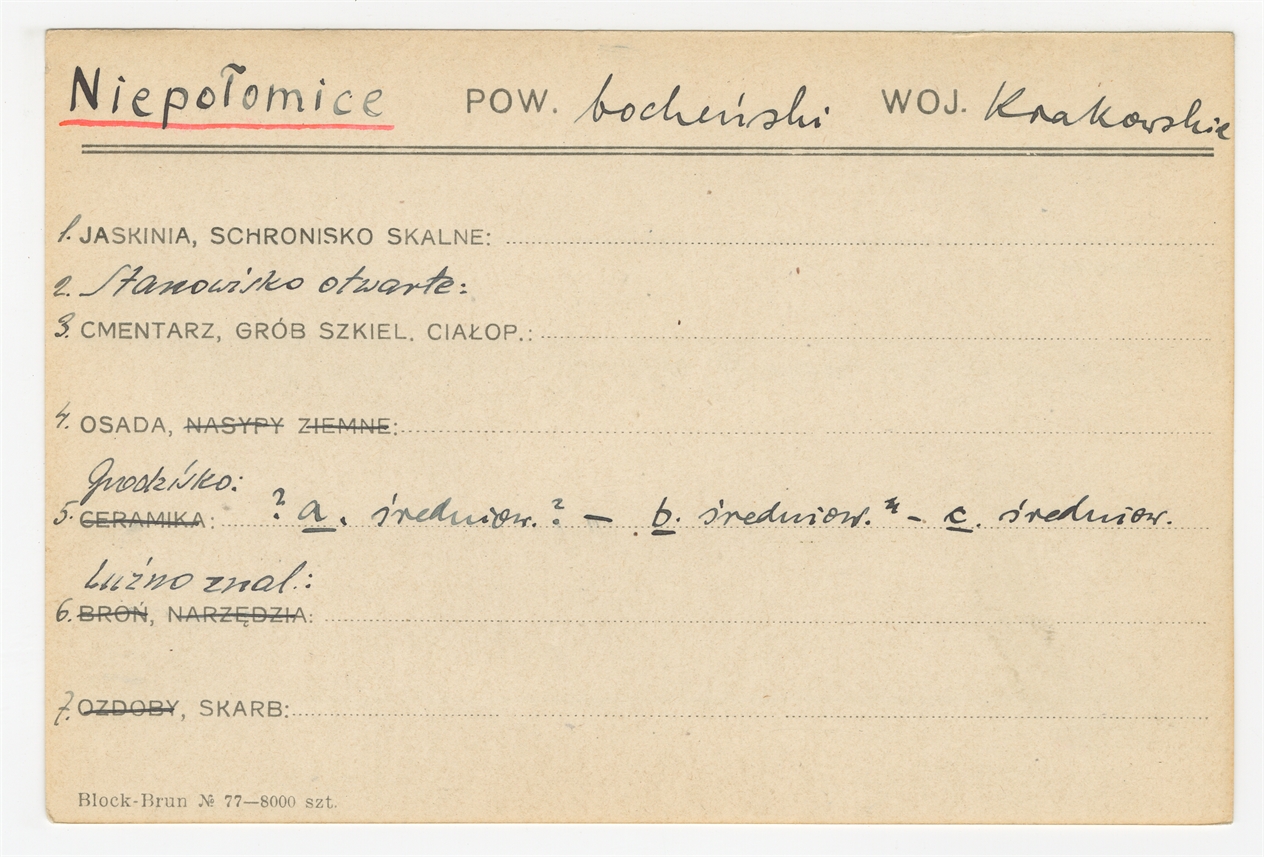 Niepołomice POW. bocheński WOJ. Krakowskie
1. JASKINIA, SCHRONISKO SKALNE:
2. Stanowisko otwarte:
3. CMENTARZ, GRÓB SZKIEL. CIAŁOP.:
4. OSADA, NASYPY ZIEMNE:
Grodzisko:
5. CERAMIKA: ? a. średniow. ? — b. średniow. - c. średniow.
Luźno znal.:
6. BROŃ, NARZĘDZIA:
7. OZDOBY, SKARB:
Block-Brun № 77—8000 szt.